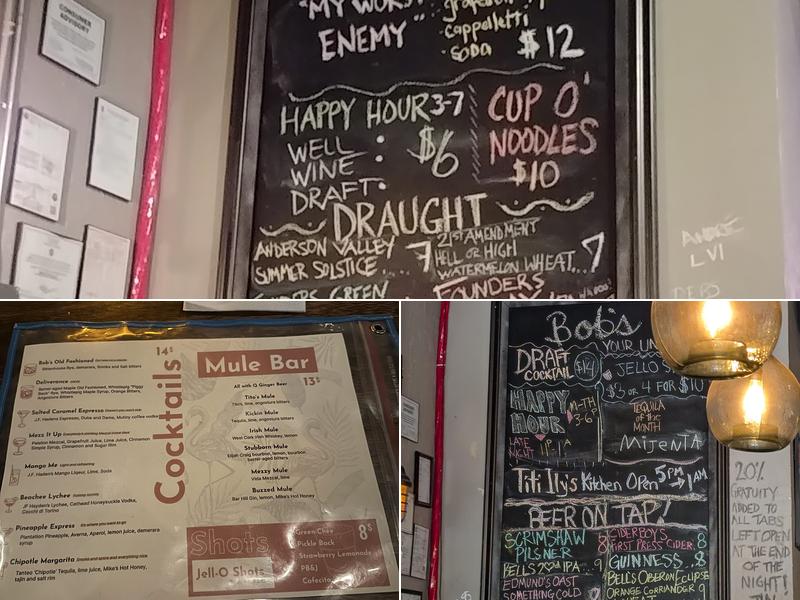 CONSUMER
ADVISORY
"MY WORST
ENEMY"
grapefruit
cappelletti
soda
$12
HAPPY HOUR 3-7
WELL :
WINE
DRAFT:
$6
CUP O'
NOODLES
$10
DRAUGHT
ANDERSON VALLEY
SUMMER SOLSTICE.... 7
21ST AMENDMENT
HELL OR HIGH
WATERMELON WHEAT...7
FOUNDERS GREEN
FOUNDERS
ANDRÉ
LVI
Cocktails
14$
Bob's Old Fashioned
Straordinaire Rye, demerara, Bombs and Salt bitters
Deliverance
Barrel-aged Maple Old Fashioned, Whistlepig "Piggy
Back" Rye, Whistlepig Maple Syrup, Orange Bitters,
Angostura Bitters
Salted Caramel Espresso
J.F. Hadens Espresso, Dulce and Dame, Mutiny coffee vodka
Mezz It Up
Peloton Mezcal, Grapefruit Juice, Lime Juice, Cinnamon
Simple Syrup, Cinnamon and Sugar Rim
Mango Me
J.F. Haden's Mango Liqueur, Lime, Soda
Beachee Lychee
JF Hayden's Lychee, Cathead Honeysuckle Vodka,
Giochi di Torino
Pineapple Express
It's where you want to go
Plantation Pineapple, Averna, Aperol, lemon juice, demerara
syrup
Chipotle Margarita
Smoke and spice and everything nice
Tanteo 'Chipotle' Tequila, lime juice, Mike's Hot Honey,
tajin and salt rim
Mule Bar
All with Q Ginger Beer
13$
Tito's Mule
Tito's, lime, angostura bitters
Kickin Mule
Tequila, lime, angostura bitters
Irish Mule
West Cork Irish Whiskey, lemon
Stubborn Mule
Elijah Craig bourbon, lemon, bourbon
barrel-aged bitters
Mezzy Mule
Vida Mezcal, lime
Buzzed Mule
Bar Hill Gin, lemon, Mike's Hot Honey
Shots
8$
Jell-O Shots
Green Chee
Pickle Back
Strawberry Lemonade
PB&J
Cafecito
Bob's
DRAFT
COCKTAIL
$14
JELLO S
$3 OR 4 FOR $10
HAPPY
HOUR
M-TH
3-6P
LATE
NIGHT
1P-1A
TEQUILA
OF THE
MONTH
MIJENTA
Tit illy's Kitchen Open 5PM → 1AM
BEER ON TAP!
SCRIMSHAW
PILSNER 8
BELLS 2ND IPA...9
EDMUND'S OAST
SOMETHING COLD
CIDERBOYS
FIRST PRESS CIDER.8
GUINNESS..8
BELL'S OBERON ECLIPSE
ORANGE CORRIANDER 9
20%
GRATUITY
ADDED TO
ALL TABS
LEFT OPEN
AT THE END
OF THE
NIGHT!